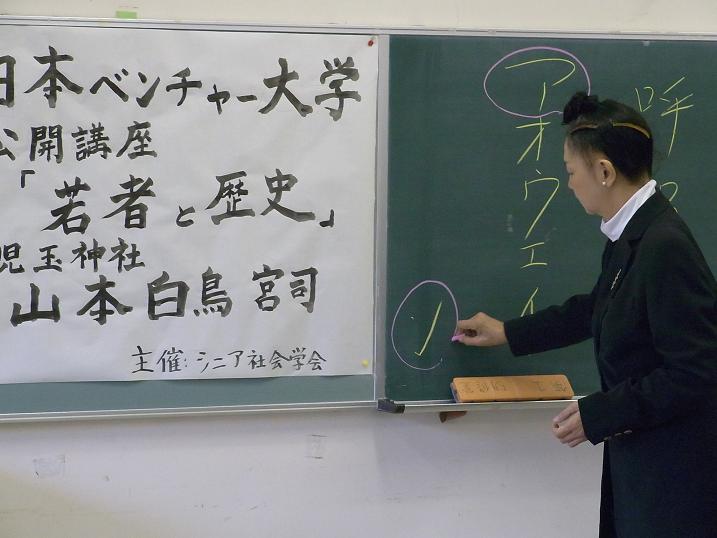 日本ベンチャー大学
公開講座
「若者と歴史」
児玉神社
山本白鳥 宮司
主催:シニア社会学会
呼
アオウエイ
ン